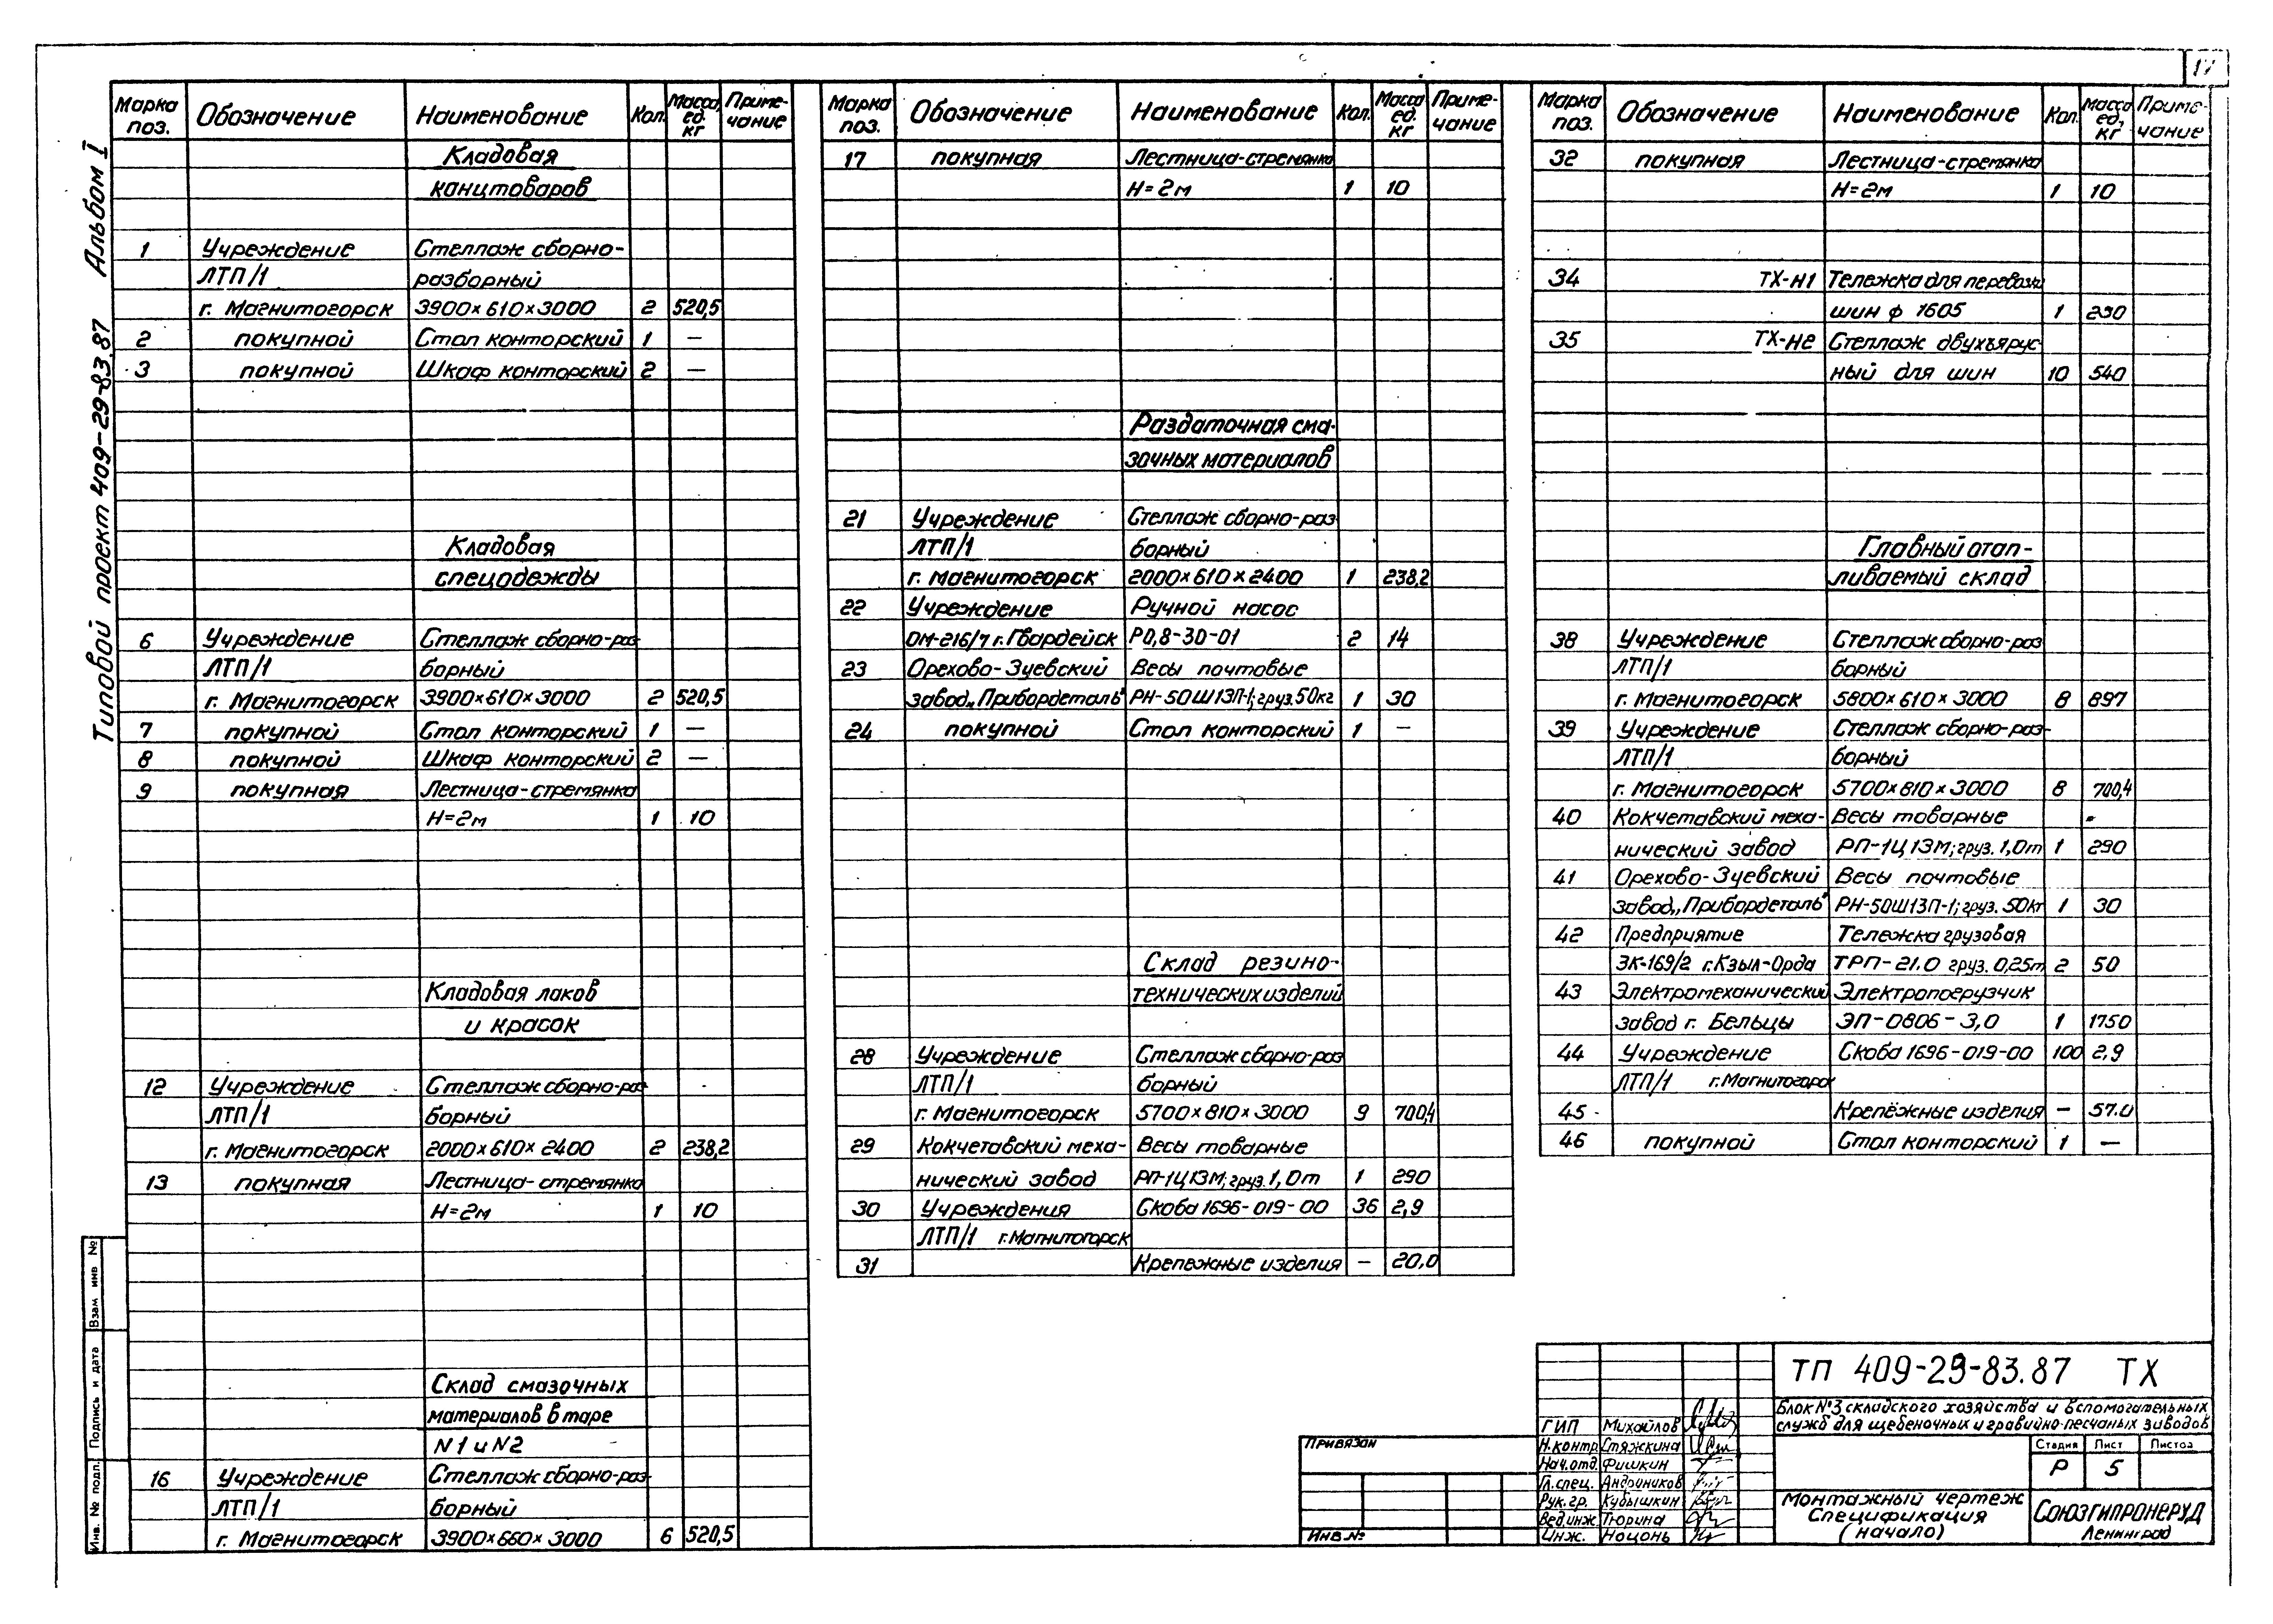 17
Типовой проект 409-29-83.87 Альбом I
Марка поз. Обозначение Наименование Кол. Масса, ед. кг Приме-чание
Кладовая
канцтоваров
1 Учреждение Стеллаж сборно-
ЛТП/1 разборный
г. Магнитогорск 3900×610×3000 2 520,5
2 покупной Стол конторский 1 —
3 покупной Шкаф конторский 2 —
Кладовая
спецодежды
6 Учреждение Стеллаж сборно-раз
ЛТП/1 борный
г. Магнитогорск 3900×610×3000 2 520,5
7 покупной Стол конторский 1 —
8 покупной Шкаф конторский 2 —
9 покупная Лестница-стремянка
Н=2м 1 10
Кладовая лаков
и красок
12 Учреждение Стеллаж сборно-раз
ЛТП/1 борный
г. Магнитогорск 2000×610×2400 2 238,2
13 покупная Лестница-стремянка
Н=2м 1 10
Склад смазочных
материалов в таре
N1 и N2
16 Учреждение Стеллаж сборно-раз-
ЛТП/1 борный
г. Магнитогорск 3900×660×3000 6 520,5
Марка поз. Обозначение Наименование Кол. Масса ед. кг Приме-чание
17 покупная Лестница-стремянка
Н=2м 1 10
Раздаточная сма-
зочных материалов
21 Учреждение Стеллаж сборно-раз
ЛТП/1 борный
г. Магнитогорск 2000×610×2400 1 238,2
22 Учреждение Ручной насос
ОМ-216/7 г. Гвардейск Р0,8-30-01 2 14
23 Орехово-Зуевский Весы почтовые
завод „Прибордеталь" РН-50Ш13П-1; груз. 50кг 1 30
24 покупной Стол конторский 1 —
Склад резино-
технических изделий
28 Учреждение Стеллаж сборно-раз
ЛТП/1 борный
г. Магнитогорск 5700×810×3000 9 700,4
29 Кокчетавский меха- Весы товарные
нический завод РП-1Ц13М; груз. 1,0т 1 290
30 Учреждения Скоба 1696-019-00 36 2,9
ЛТП/1 г. Магнитогорск
31 Крепежные изделия — 20,0
Марка поз. Обозначение Наименование Кол. Масса ед, кг Приме-чание
32 покупная Лестница-стремянка
Н=2м 1 10
34 ТХ-Н1 Тележка для перевозки
шин ф 1605 1 230
35 ТХ-Н2 Стеллаж двухъярус
ный для шин 10 540
Главный отап-
ливаемый склад
38 Учреждение Стеллаж сборно-раз
ЛТП/1 борный
г. Магнитогорск 5800×610×3000 8 897
39 Учреждение Стеллаж сборно-раз-
ЛТП/1 борный
г. Магнитогорск 5700×810×3000 8 700,4
40 Кокчетавский меха- Весы товарные
нический завод РП-1Ц13М; груз. 1,0т 1 290
41 Орехово-Зуевский Весы почтовые
завод „Прибордеталь" РН-50Ш13П-1; груз. 50кг 1 30
42 Предприятие Тележка грузовая
ЗК-169/2 г. Кзыл-Орда ТРП-21.0 груз. 0,25т 2 50
43 Электромеханический Электропогрузчик
завод г. Бельцы ЭП-0806-3,0 1 1750
44 Учреждение Скоба 1696-019-00 100 2,9
ЛТП/1 г. Магнитогорск
45 Крепёжные изделия — 57.0
46 покупной Стол конторский 1 —
Взам инв №
Подпись и дата
Инв. № подл.
Привязан
Инв. №
ТП 409-29-83.87 ТХ
Блок №3 складского хозяйства и вспомогательных
служб для щебеночных и гравийно-песчаных заводов
ГИП Михайлов
Н.контр. Стяжкина
Нач.отд. Фишкин
Гл.спец. Андроников
Рук.гр. Кубышкин
Вед.инж. Тюрина
Инж. Ноцонь
Стадия Лист Листов
Р 5
Монтажный чертеж
Спецификация
(начало)
Союзгипронеруд
Ленинград